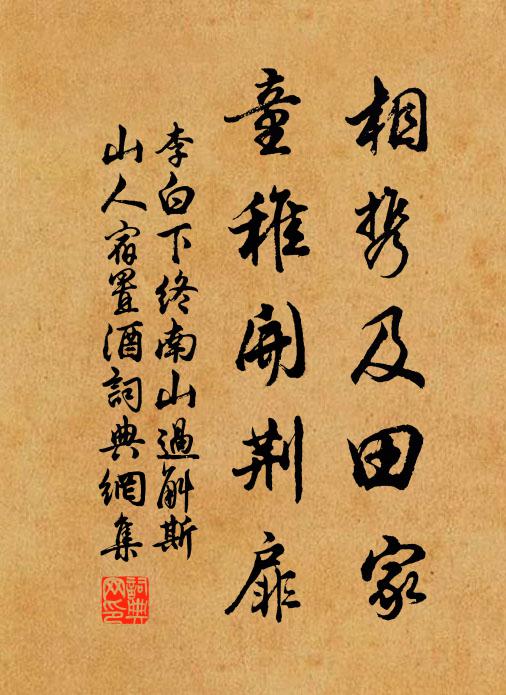 相携及田家
童稚開荆扉
李白下终南山過斛斯
山人宿置酒詞典網集
詞典
网印